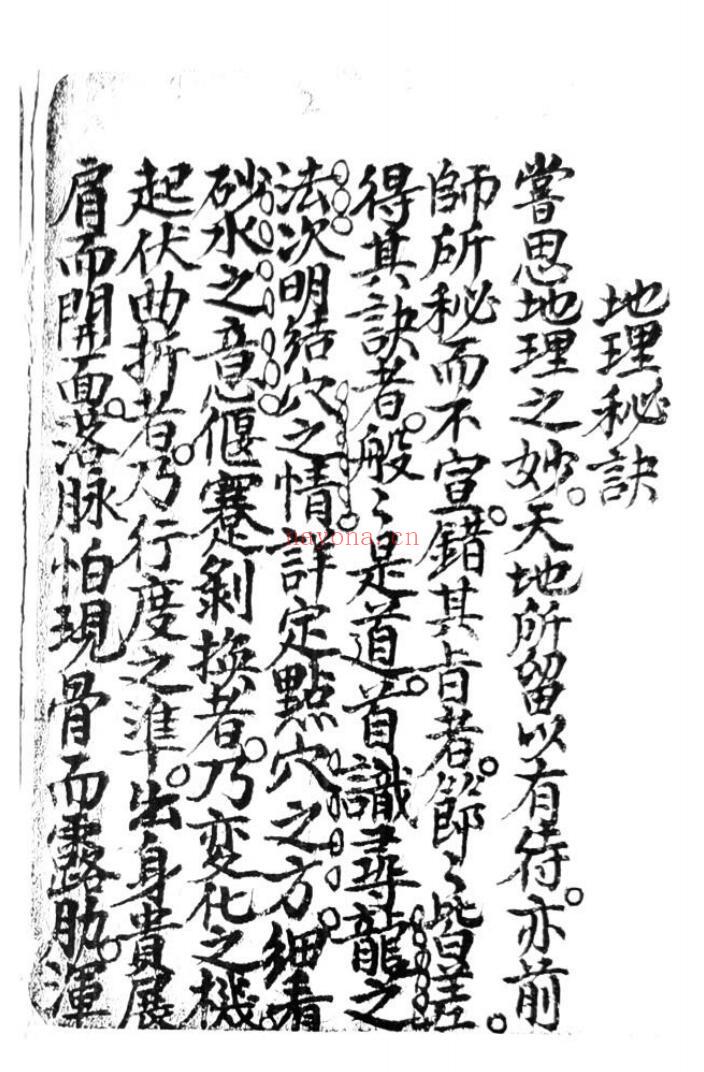 2
地理秘訣
嘗思地理之妙。天地所留以有待。亦前
師所秘而不宣。錯其旨者。節〻皆差。
得其訣者。般〻是道。首識尋龍之
法次明結穴之情。詳定點穴之方細看
砂水之意。偃蹇剝換者。乃変化之機。
起伏曲折者。乃行度之準。出身貴展
肩而開面。落脉怕現骨而露肋。渾
nayona.cn